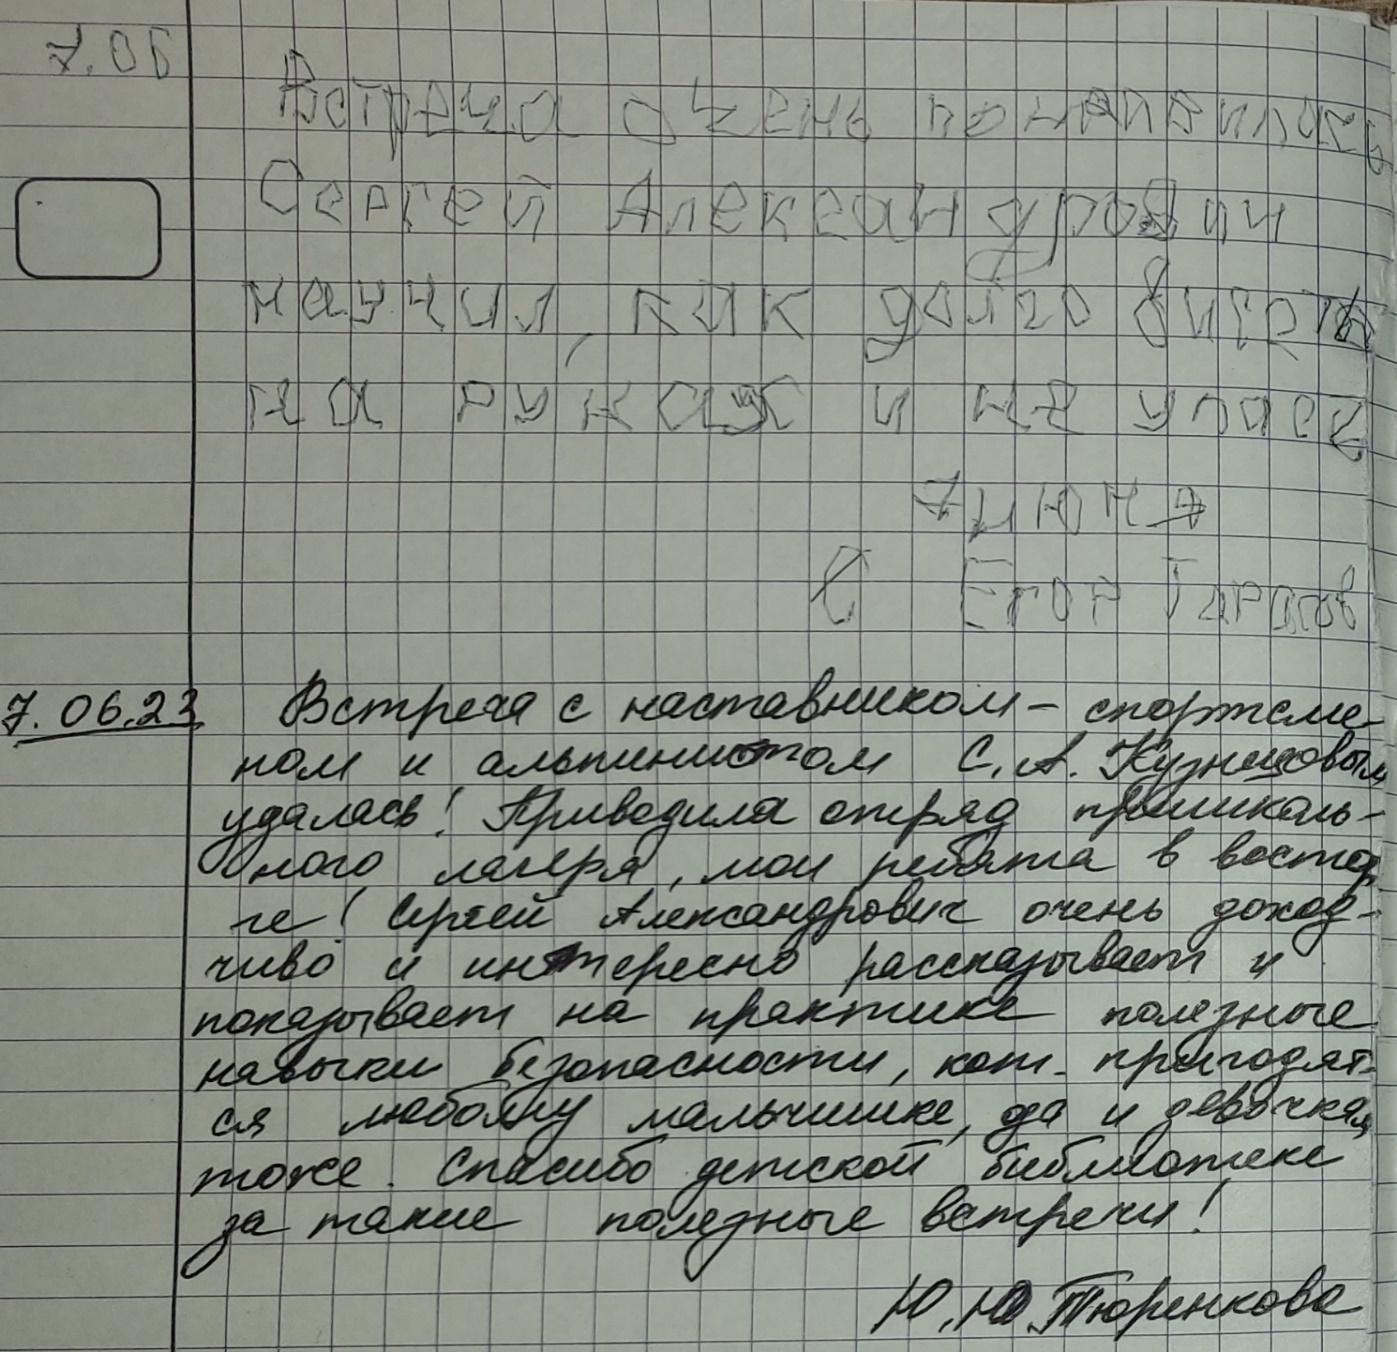 7.06
Встреча очень понравилась
Сергей Александрович
научил, как долго висеть
на руках и не упасть
7 июня
Егор
7.06.23 Встреча с наставником – спортсме
ном и альпинистом С.А. Кузнецовым
удалась! Приводила отряд пришколь-
ного лагеря, мои ребята в востор
ге! Сергей Александрович очень доход-
чиво и интересно рассказывает и
показывает на практике полезные
навыки безопасности, кот. пригодят-
ся любому мальчишке, да и девочкам
тоже. Спасибо детской библиотеке
за такие полезные встречи!
Ю.Ю. Тюренкова